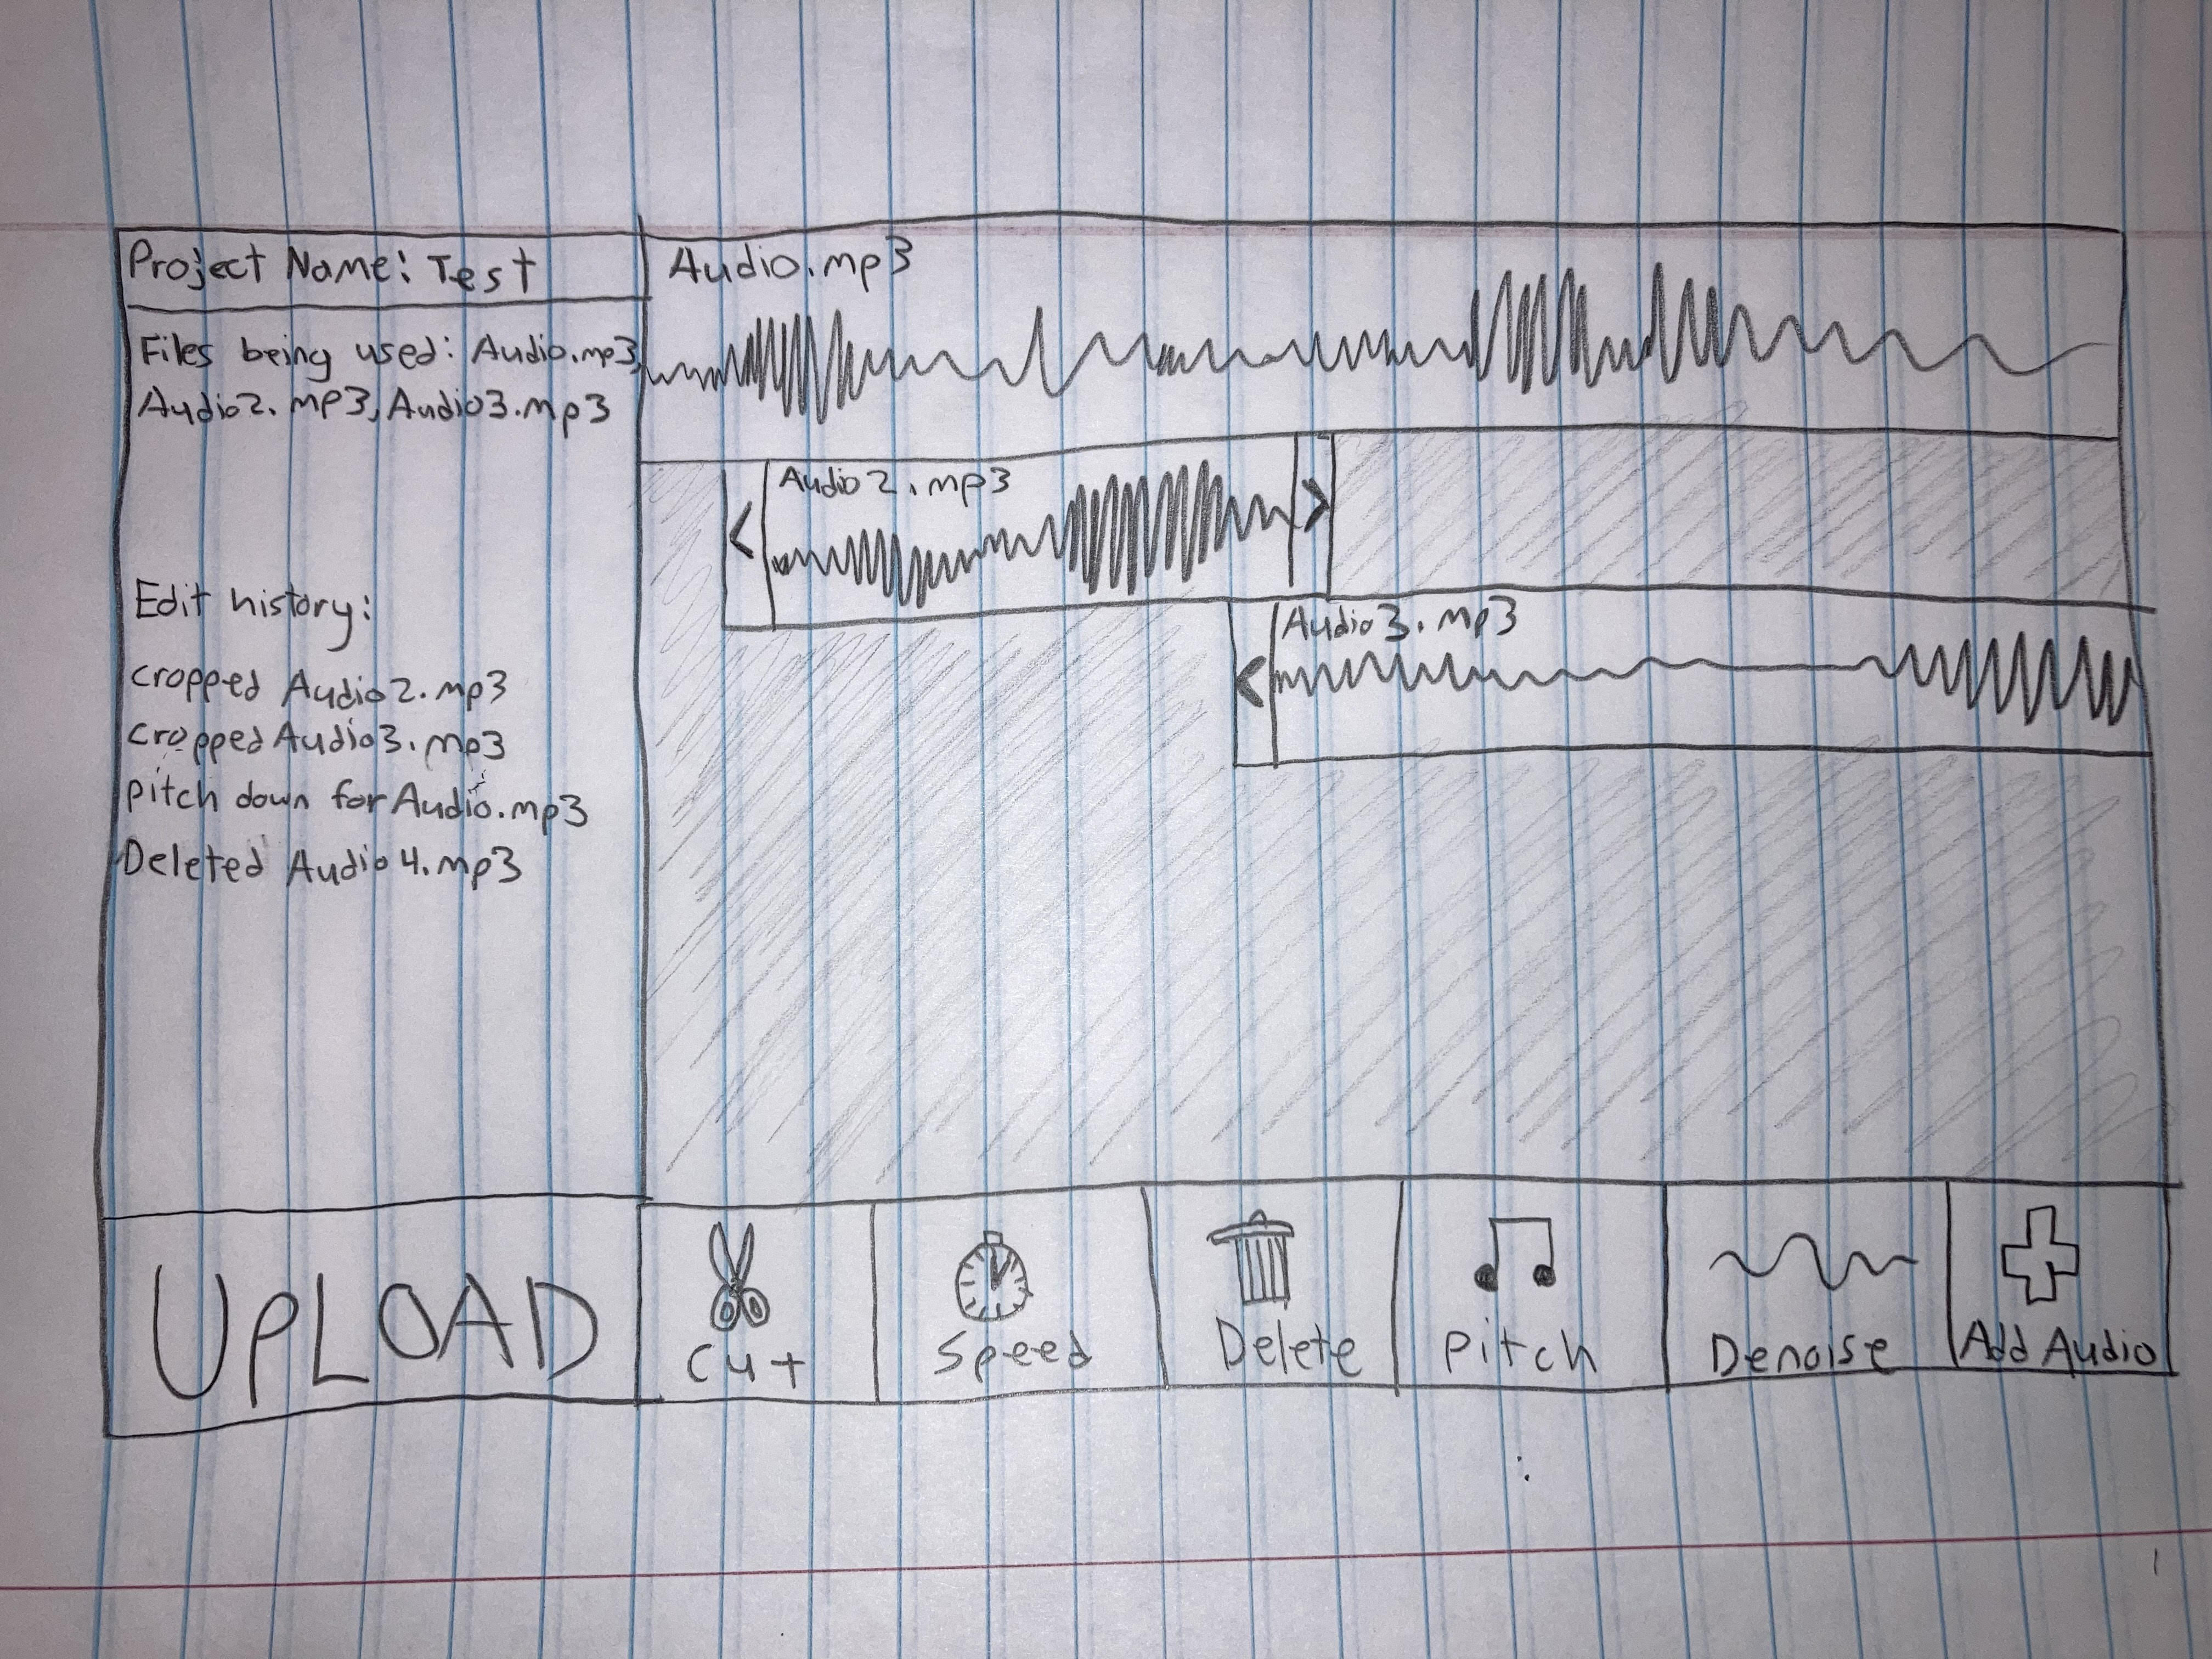 Project Name: Test
Files being used: Audio.mp3,
Audio2.mp3, Audio3.mp3
Edit history:
cropped Audio2.mp3
cropped Audio3.mp3
pitch down for Audio.mp3
Deleted Audio4.mp3
UPLOAD
Audio.mp3
< Audio2.mp3 >
< Audio3.mp3
Cut
Speed
Delete
Pitch
Denoise
Add Audio